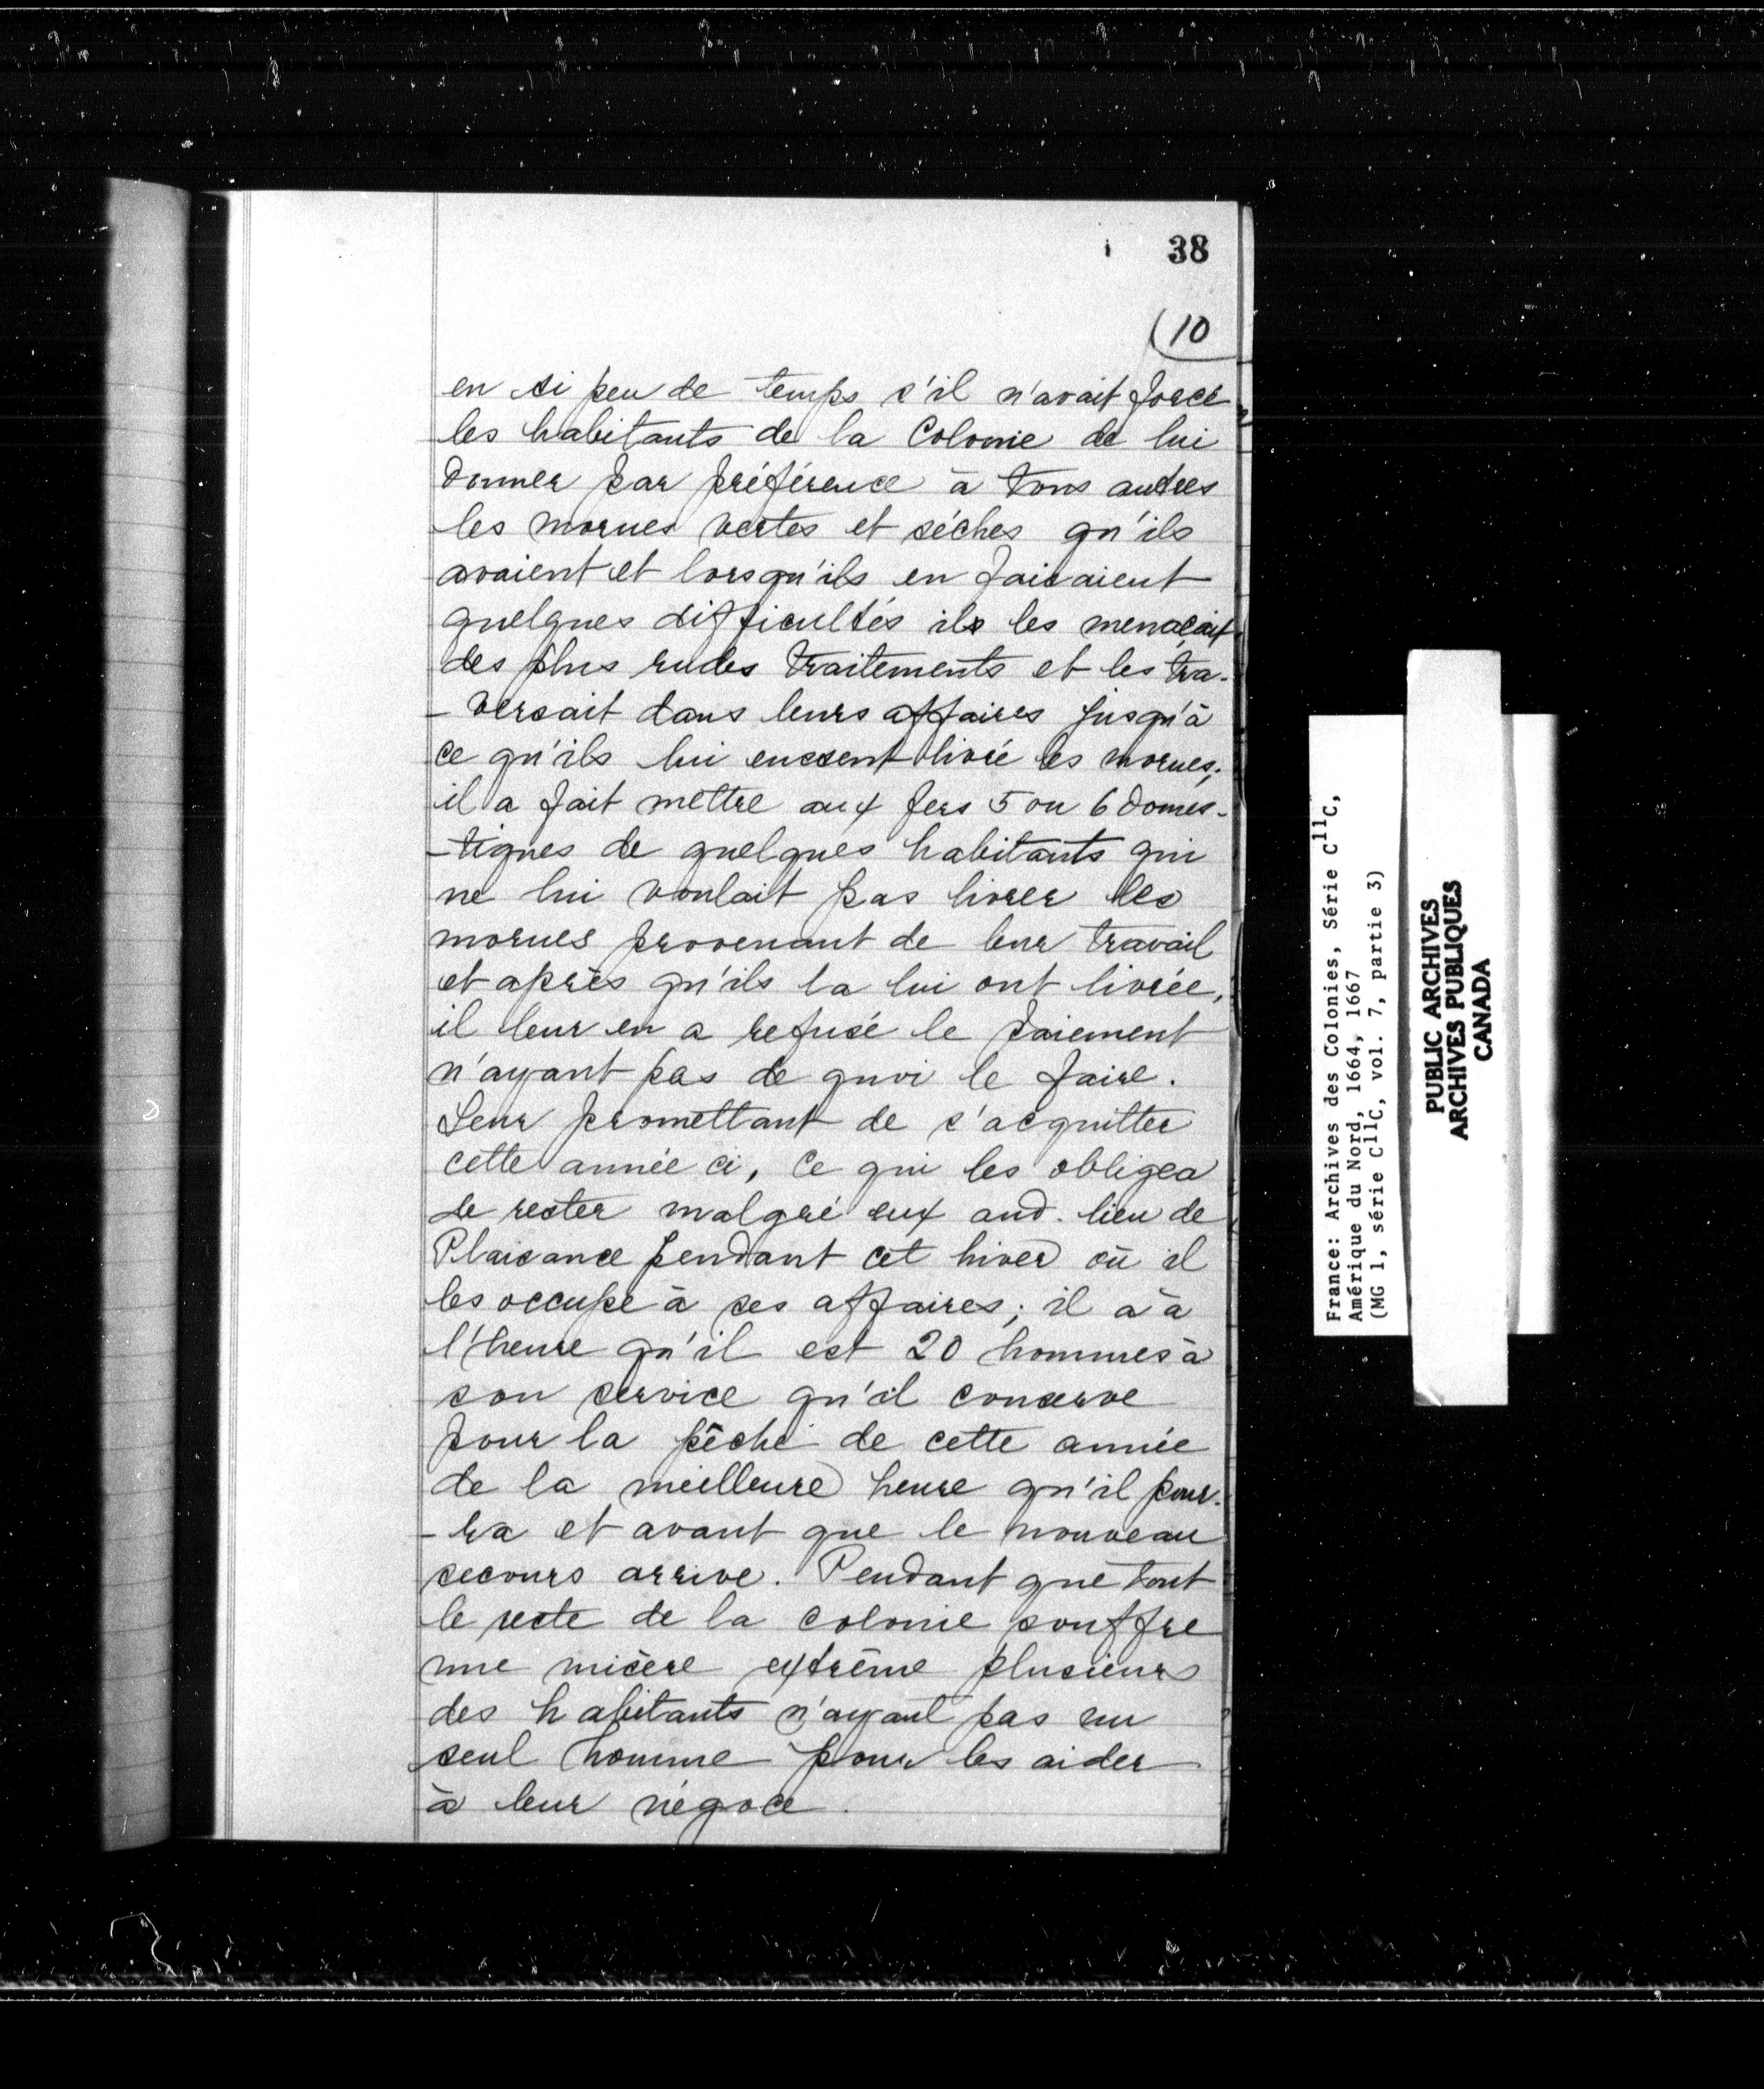 38
(10
en si peu de temps s'il n'avait forcé
les habitants de la Colonie de lui
donner par préférence à tous autres
les morues vertes et séches qu'ils
avaient et lorsqu'ils en faisaient
quelques difficultés ils les menaçait
des plus rudes traitements et les tra-
-versait dans leurs affaires jusqu'à
ce qu'ils lui eussent livré les morues;
il a fait mettre aux fers 5 ou 6 domes-
-tiques de quelques habitants qui
ne lui voulait pas livrer les
morues provenant de leur travail
et après qu'ils la lui ont livrée,
il leur en a refusé le paiement
n'ayant pas de quoi le faire.
Leur promettant de s'acquitter
cette année ci, ce qui les obligea
de rester malgré eux aud. lieu de
Plaisance pendant cet hiver où il
les occupe à ses affaires; il a à
l'heure qu'il est 20 hommes à
son service qu'il conserve
pour la pêche de cette année
de la meilleure heure qu'il pour-
-ra et avant que le nouveau
secours arrive. Pendant que tout
le reste de la colonie souffre
une misère extrême plusieurs
des habitants n'ayant pas un
seul homme pour les aider
à leur négoce.
France: Archives des Colonies, Série C11C,
Amérique du Nord, 1664, 1667
(MG 1, série C11C, vol. 7, partie 3)
PUBLIC ARCHIVES
ARCHIVES PUBLIQUES
CANADA